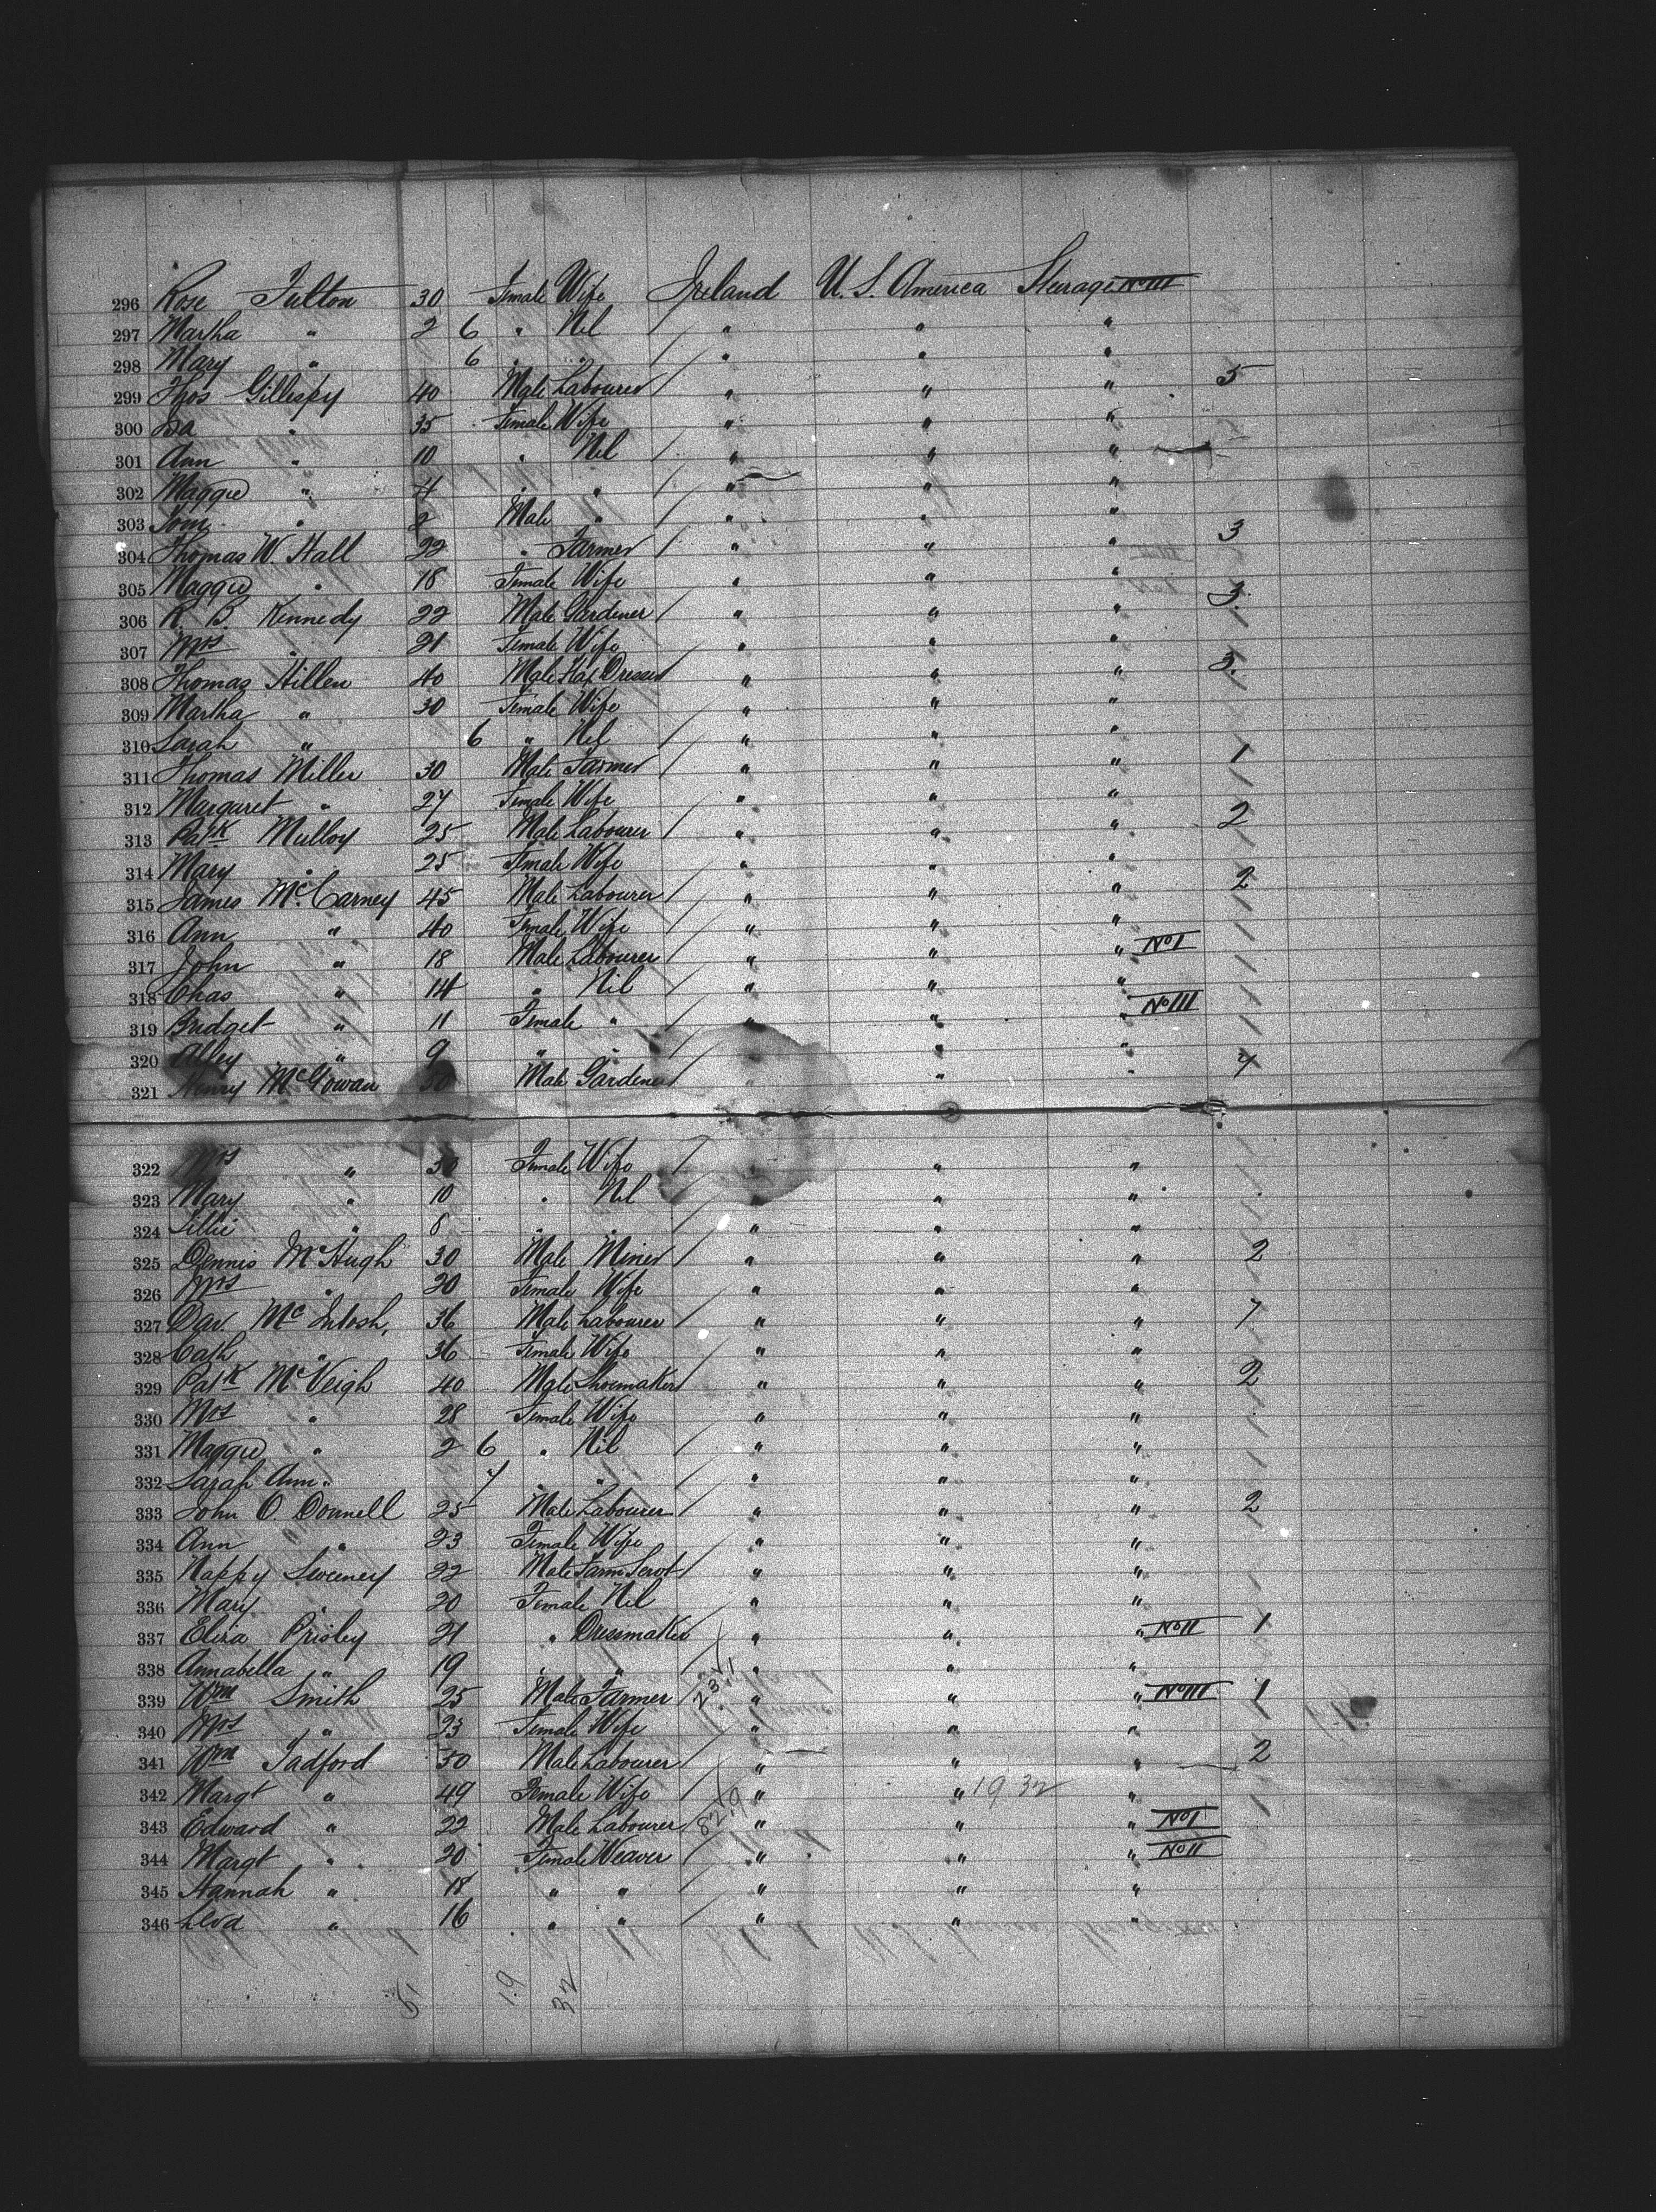 296 Rose Fulton 30 Female Wife Ireland U. S. America Steerage No III
297 Martha " 2 6 " Nil / " " "
298 Mary " 6 " " / " " "
299 Thos Gillespy 40 Male Labourer / " " " 5
300 Da " 35 Female Wife " " "
301 Ann " 10 " Nil / " " "
302 Maggie " 4 " " / " " "
303 Tom " 2 Male " / " " "
304 Thomas W. Hall 22 " Farmer / " " " 3
305 Maggie " 18 Female Wife " " "
306 R. B. Kennedy 22 Male Gardener / " " " 3
307 Mrs " 21 Female Wife " " "
308 Thomas Hillen 40 Male Flax Dresser " " " 3
309 Martha " 30 Female Wife " " "
310 Sarah " 6 " Nil / " " "
311 Thomas Miller 30 Male Farmer / " " " 1
312 Margaret " 27 Female Wife " " "
313 Patk Mulloy 25 Male Labourer / " " " 2
314 Mary " 25 Female Wife " " "
315 James McCarney 45 Male Labourer / " " " 2
316 Ann " 40 Female Wife " " "
317 John " 18 Male Labourer / " " " No I
318 Chas " 14 " Nil / " " "
319 Bridget " 11 Female " / " " " No III
320 Alley " 9 " " / " " "
321 Henry McGowan 30 Male Gardener / " " " 4
322 Mrs " 30 Female Wife / " " "
323 Mary " 10 " Nil / " " "
324 Lillie " 8 " " / " " "
325 Dennis McHugh 30 Male Miner / " " " 2
326 Mrs " 20 Female Wife " " "
327 Dav. McIntosh, 36 Male Labourer / " " " 7
328 Cath " 36 Female Wife " " "
329 Patk McVeigh 40 Male Shoemaker / " " " 2
330 Mrs " 28 Female Wife " " "
331 Maggie " 2 6 " Nil / " " "
332 Sarah Ann " 7 " " / " " "
333 John O. Donnell 25 Male Labourer / " " " 2
334 Ann " 23 Female Wife " " "
335 Nappy Sweeney 22 Male Farm Servt / " " "
336 Mary " 20 Female Nil / " " "
337 Eliza Prisley 21 " Dressmaker / " " " No II 1
338 Annabella " 19 " " / " " "
339 Wm Smith 25 Male Farmer / " " " No III 1
340 Mrs " 23 Female Wife " " "
341 Wm Tadford 50 Male Labourer / " " " 2
342 Margt " 49 Female Wife " " 19 32 "
343 Edward " 22 Male Labourer / " " " No I
344 Margt " 20 Female Weaver / " " " No II
345 Hannah " 18 " " / " " "
346 " 16 " " / " " "
19 32